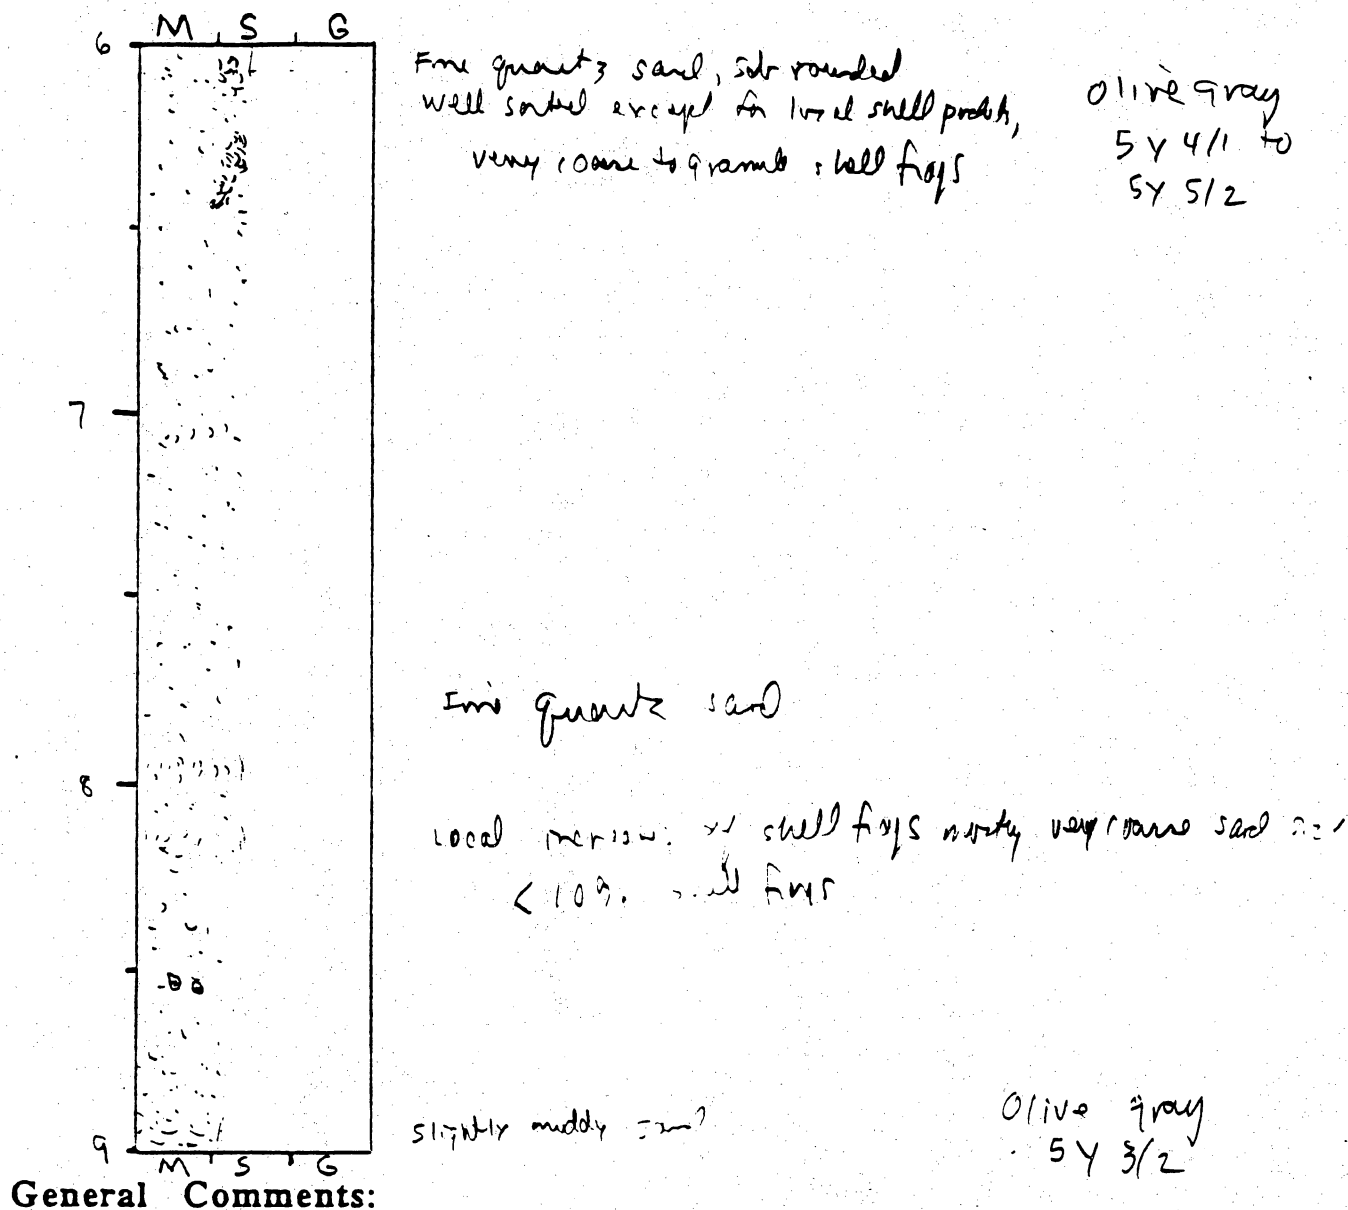 M S G
6
Fine quartz sand, sub rounded
well sorted except for local shell pockets,
very coarse to granule shell frags
Olive gray
5Y 4/1 to
5Y 5/2
7
Fine quartz sand
8
Local shell frags mostly very coarse sand
< 10%. shell frags
slightly muddy
Olive gray
5Y 3/2
9
M S G
General Comments: